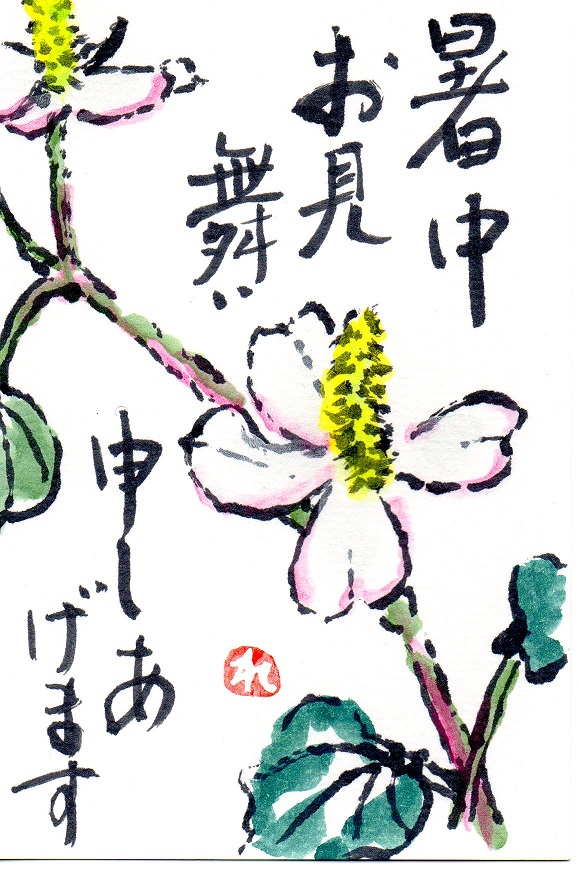 暑中
お見
舞い
申しあ
げます
れ